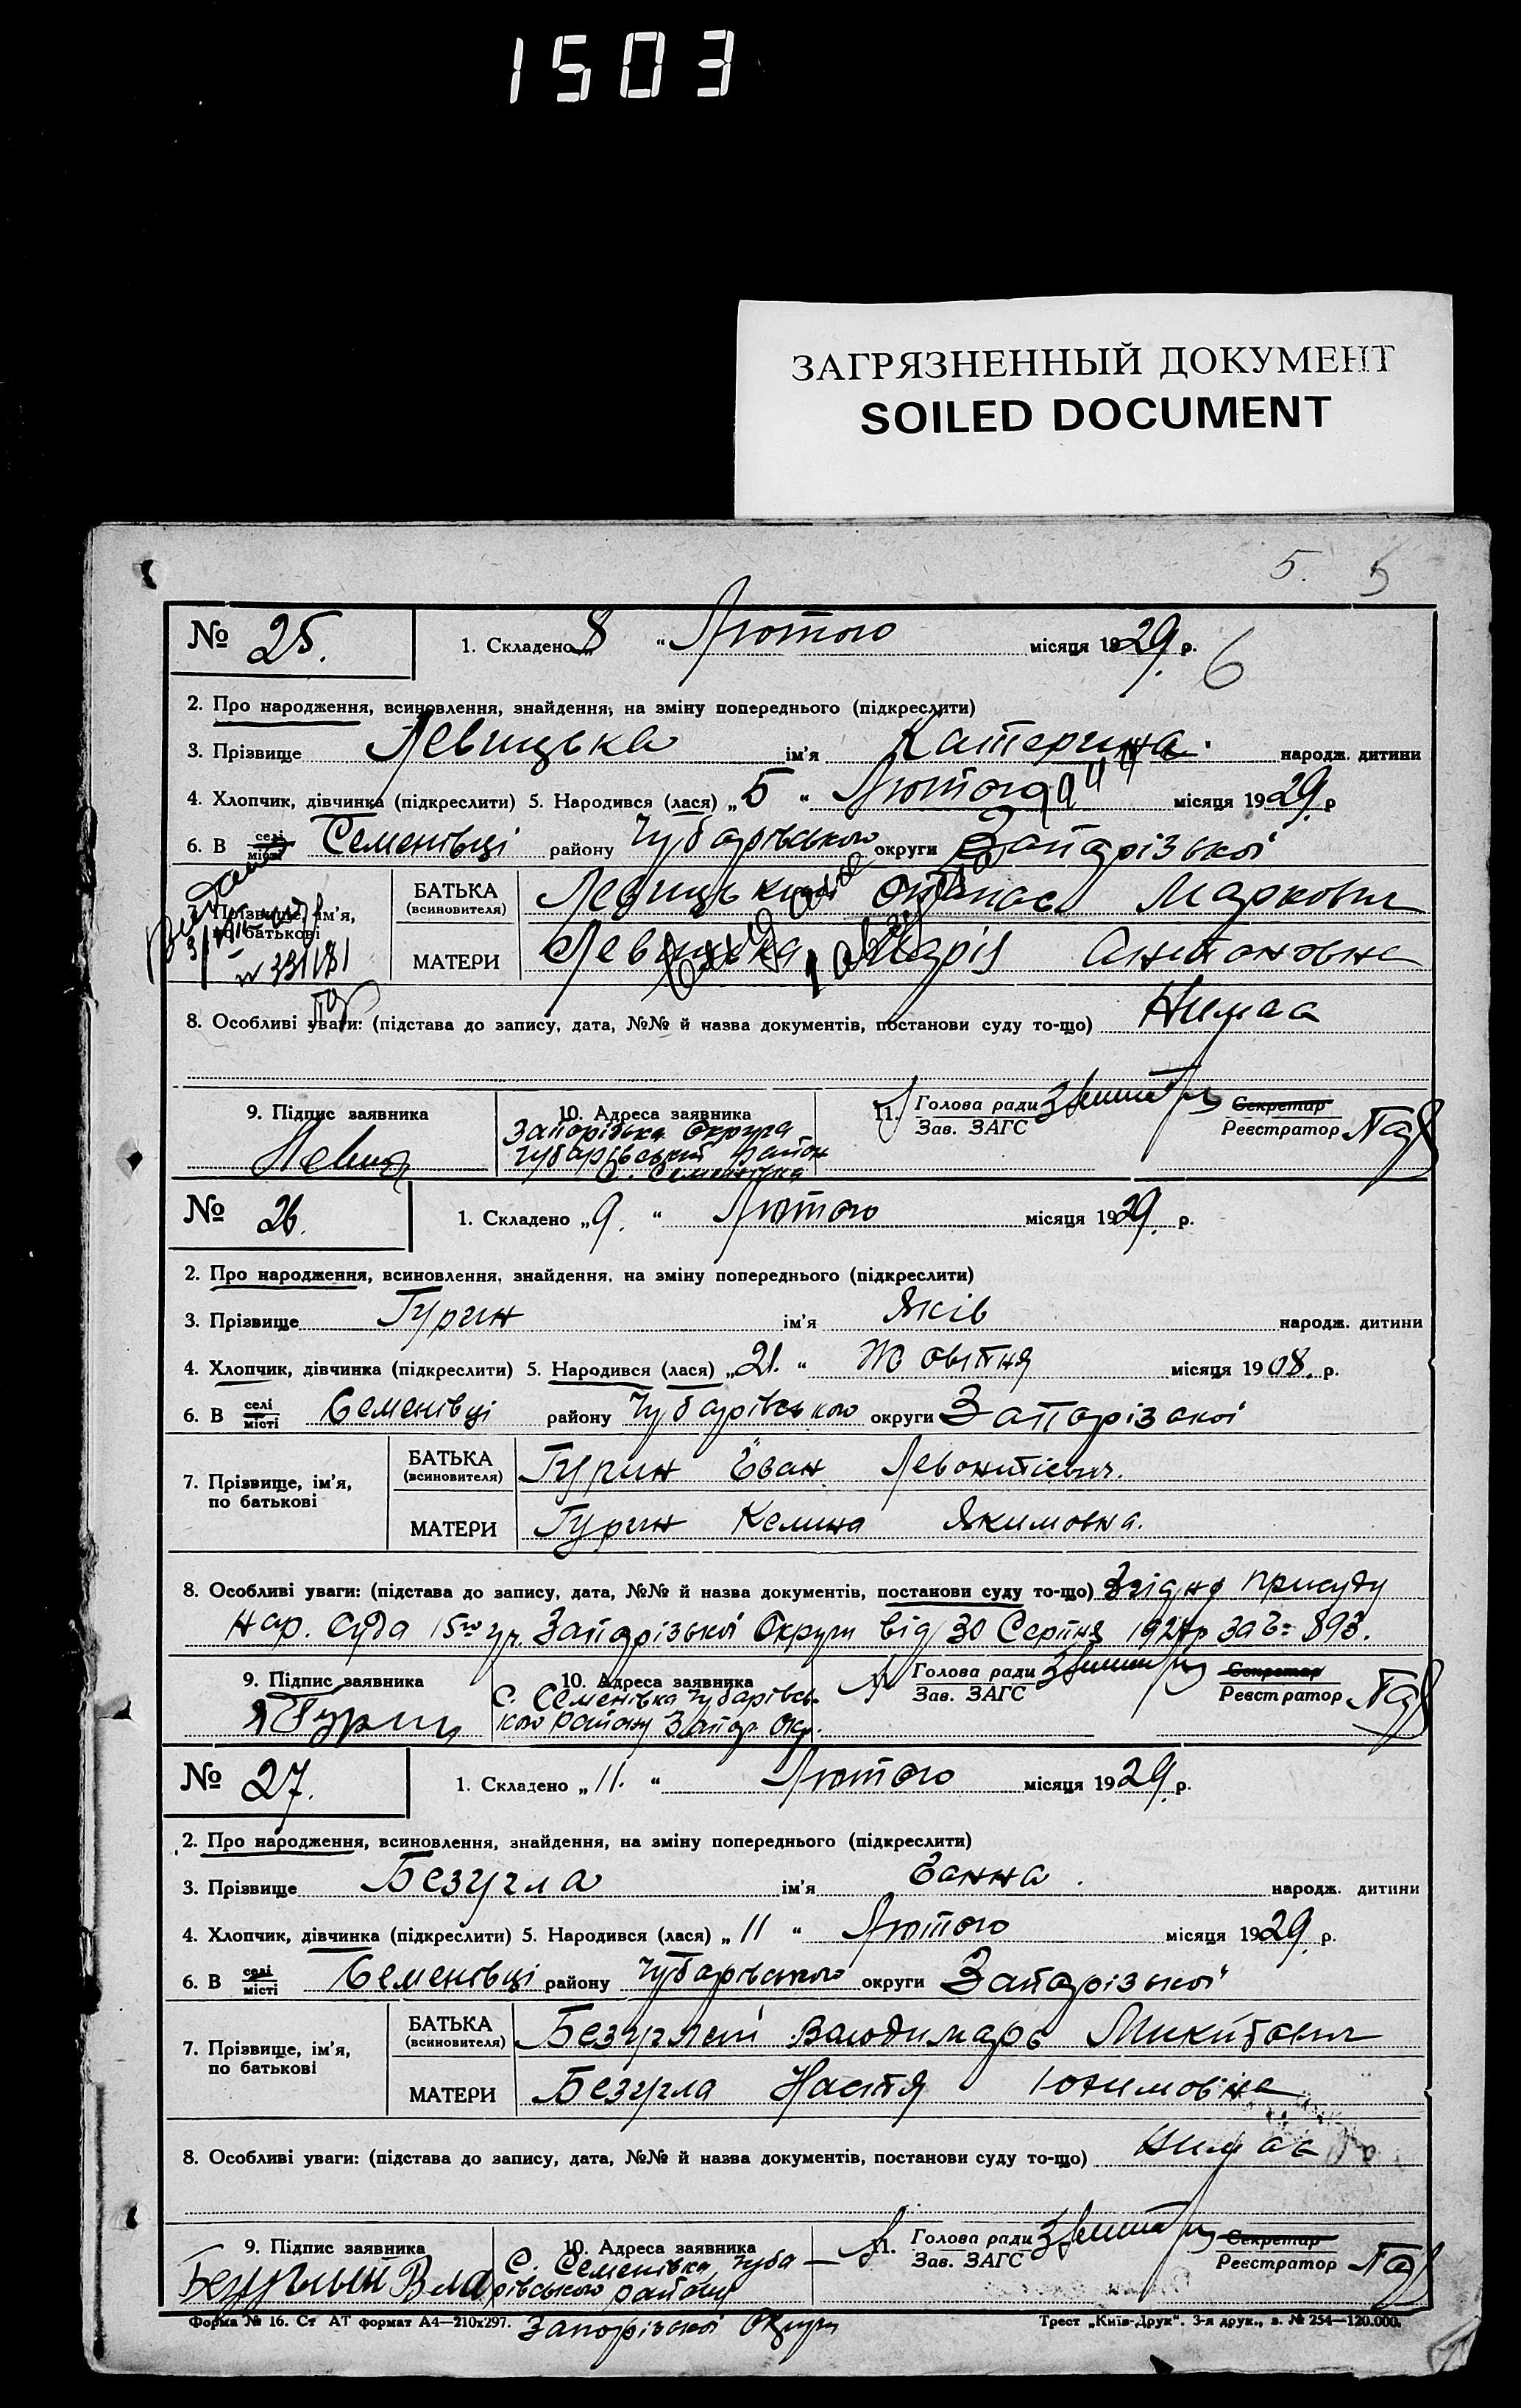 1503
ЗАГРЯЗНЕННЫЙ ДОКУМЕНТ
SOILED DOCUMENT
5. 5
№ 25. 1. Складено „8 “ Лютого місяця 1929 р. 6
2. Про народження, всиновлення, знайдення, на зміну попереднього (підкреслити)
3. Прізвище Левицька ім’я Катерина. народж. дитини
4. Хлопчик, дівчинка (підкреслити) 5. Народився (лася) „ 5 “ Лютого місяця 1929. р
6. В селі місті Семенівці району Чубарівського округи Запарізької
7. Прізвище, ім’я, по батькові
БАТЬКА (всиновителя) Левицький Опанас Маркович
МАТЕРИ Левицька Марія Антоновна
8. Особливі уваги: (підстава до запису, дата, №№ й назва документів, постанови суду то-що) Нимаа
9. Підпис заявника 10. Адреса заявника 11. Голова ради Зав. ЗАГС Секретар Реєстратор
Запорізька Округа
Чубарівський район
с. Семенівка
№ 26. 1. Складено „9. “ Лютого місяця 1929. р.
2. Про народження, всиновлення, знайдення, на зміну попереднього (підкреслити)
3. Прізвище Гурин ім’я Яків народж. дитини
4. Хлопчик, дівчинка (підкреслити) 5. Народився (лася) „21. “ Жовтня місяця 1908. р.
6. В селі місті Семенівці району Чубарівського округи Запарізскої
7. Прізвище, ім’я, по батькові
БАТЬКА (всиновителя) Гурин Іван Левонтієвич.
МАТЕРИ Гурин Келина Якимовна.
8. Особливі уваги: (підстава до запису, дата, №№ й назва документів, постанови суду то-що) Згідно присуду
Нар. Суда 15го уч. Запарізької Округи від 30 Серпня 192 р за 893.
9. Підпис заявника 10. Адреса заявника Голова ради Зав. ЗАГС Секретар Реєстратор
Я Гурин С. Семенівка Чубарівсь-
кого району Запор. Окр.
№ 27. 1. Складено „ 11. “ Лютого місяця 1929. р.
2. Про народження, всиновлення, знайдення, на зміну попереднього (підкреслити)
3. Прізвище Безугла ім’я Ганна. народж. дитини
4. Хлопчик, дівчинка (підкреслити) 5. Народився (лася) „ 11 “ Лютого місяця 1929. р.
6. В селі місті Семенівці району Чубарівського округи Запарізької
7. Прізвище, ім’я, по батькові
БАТЬКА (всиновителя) Безуглий Валодимарь Микитович
МАТЕРИ Безугла Настя Юхимовна
8. Особливі уваги: (підстава до запису, дата, №№ й назва документів, постанови суду то-що) Нимаа
9. Підпис заявника 10. Адреса заявника 11. Голова ради Зав. ЗАГС Секретар Реєстратор
С. Семенівка Чуба-
рівського району
Запорізскої Округи
Форма № 16. Ст АТ формат А4—210x297. Трест „Київ-Друк“. 3-я друк., з. № 254—120.000.